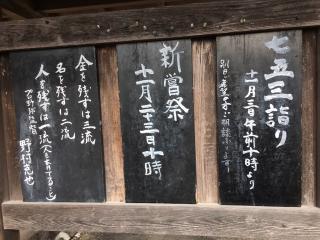 七五三詣り
十一月三日午前十時より
新嘗祭
十一月二十三日十時
金を残すは三流
名を残すは二流
人を残すは一流
プロ野球監督
野村克也